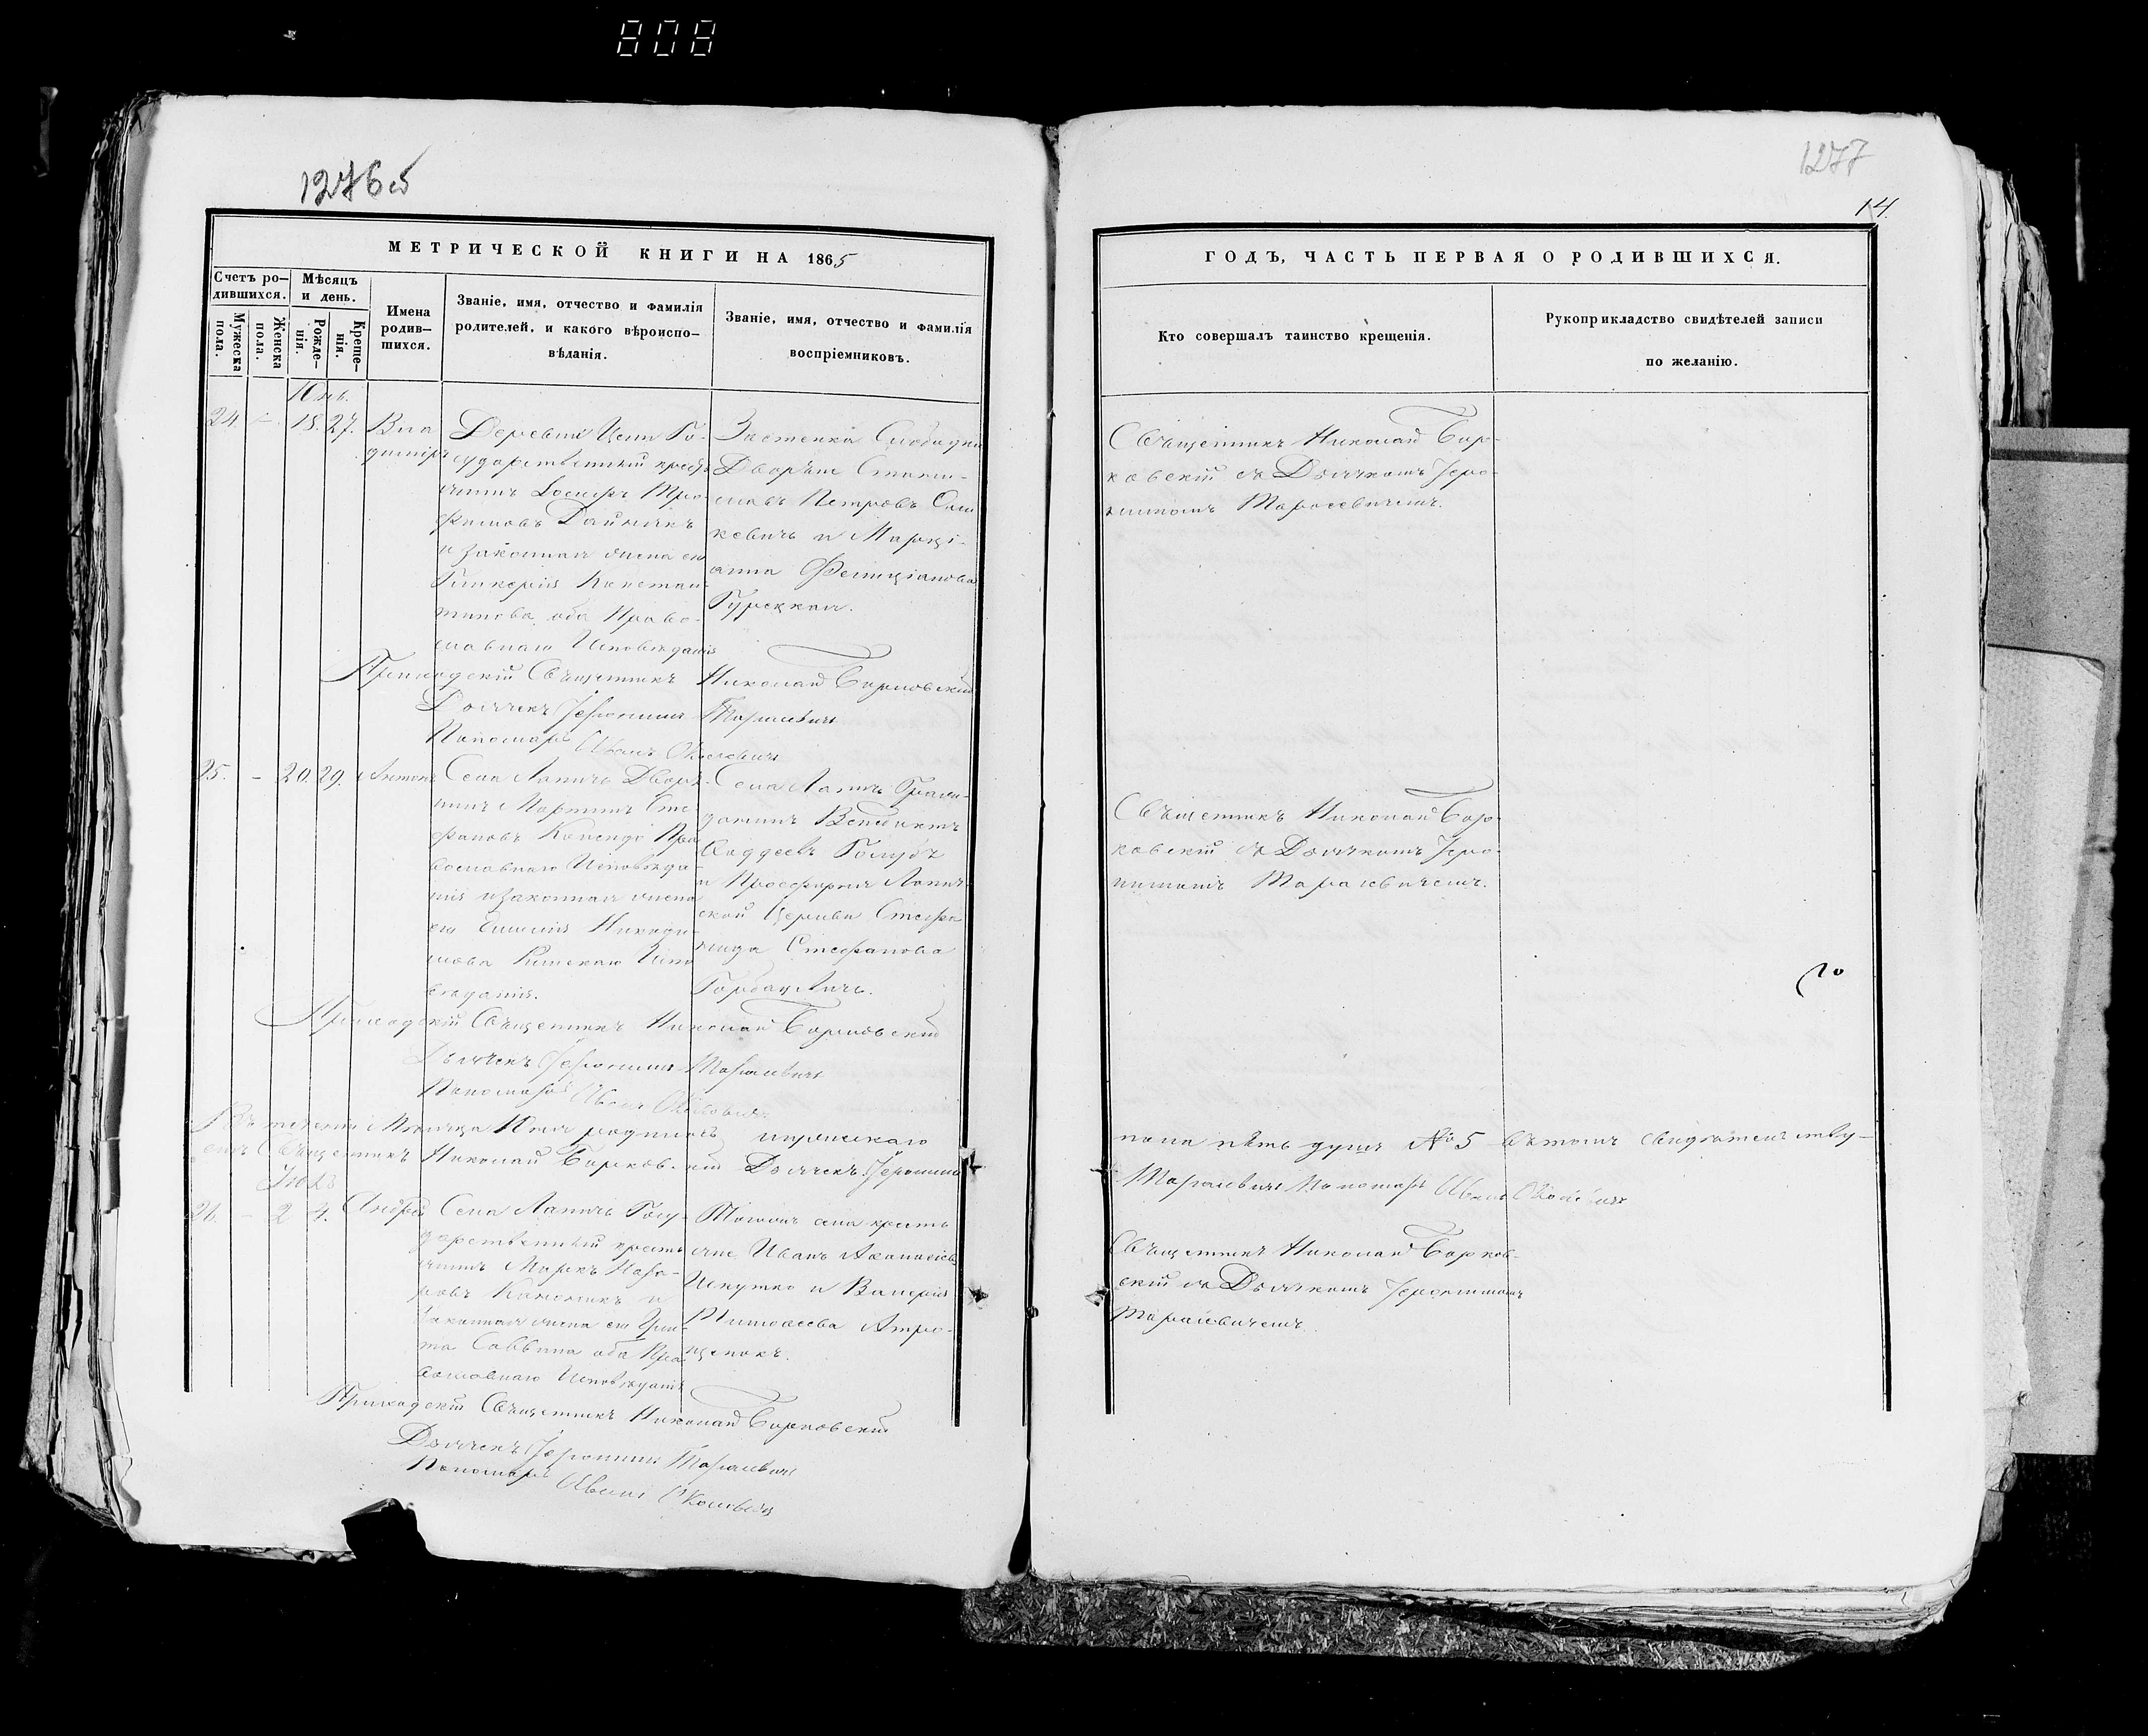 808
1276об
1277
14.
МЕТРИЧЕСКОЙ КНИГИ НА 1865
ГОДЪ, ЧАСТЬ ПЕРВАЯ О РОДИВШИХСЯ.
Счетъ ро-
дившихся.
Мужеска
пола.
Женска
пола.
Мѣсяцъ
и день.
Рожде-
нія.
Креще-
нія.
Имена
родив-
шихся.
Званіе, имя, отчество и фамилія
родителей, и какого вѣроиспо-
вѣданія.
Званіе, имя, отчество и фамилія
воспріемниковъ.
Кто совершалъ таинство крещенія.
Рукоприкладство свидѣтелей записи
по желанію.
Юнь.
24 – 18. 27.
Вла
димиръ
Деревни Цели Го-
сударственный кресть
янинъ Іосифъ Тро-
фимовъ
и законная жена его
Гликерія Констан-
тинова оба Право-
славнаго Исповѣданія
Застенка Слободки
Дворяне Стани-
славъ Петровъ
кевичъ и Марці-
анна Феликціанова
Гурецкая.
Священникъ Николай Бор-
ковскій съ Дьячкомъ Іеро-
нимомъ Тарасевичемъ.
Приходскій Священникъ Николай Борковскій
Дьячекъ Іеронимъ Тарасевичъ
Пономарь Иванъ
25. – 20. 29.
Антонъ
Села Лапичъ Дворя-
нинъ Мартинъ Сте
фановъ Копендо Пра
вославнаго Исповѣда-
нія и законная жена
его Емилія Никоди-
мова Римскаго Испо
вѣданія.
Села Лапичъ Граж-
данинъ Венедиктъ
Фаддеевъ Голубъ
и Просфирня Лапич-
ской Церкви Стефа
нида Стефанова
Горбацевичъ.
Священникъ Николай Бор-
ковскій съ Дьячкомъ Іеро-
нимомъ Тарасевичемъ.
Приходскій Священникъ Николай Борковскій
Дьячекъ Іеронимъ Тарасевичъ
Пономарь Иванъ
Въ теченіи Мѣсяца Юня родилось мужескаго
пола пять душъ № 5 въ томъ свидѣтельству-
емъ Священникъ Николай Борковскій Дьячекъ Іеронимъ
Тарасевичъ Пономарь Иванъ
Іюль
26. – 2 4.
Андрей
Села Лапичъ Госу-
дарственный кресть
янинъ Маркъ Наза-
ровъ Каношикъ и
законная жена его
Саввина оба Пра
вославнаго Исповѣданія
Тогожъ села кресть
яне Иванъ Афанасіевъ
и Валерія
Титовева Атро-
щенокъ.
Священникъ Николай Борков-
скій съ Дьячкомъ Іеронимомъ
Тарасевичемъ.
Приходскій Священникъ Николай Борковскій
Дьячекъ Іеронимъ Тарасевичъ
Пономарь Иванъ